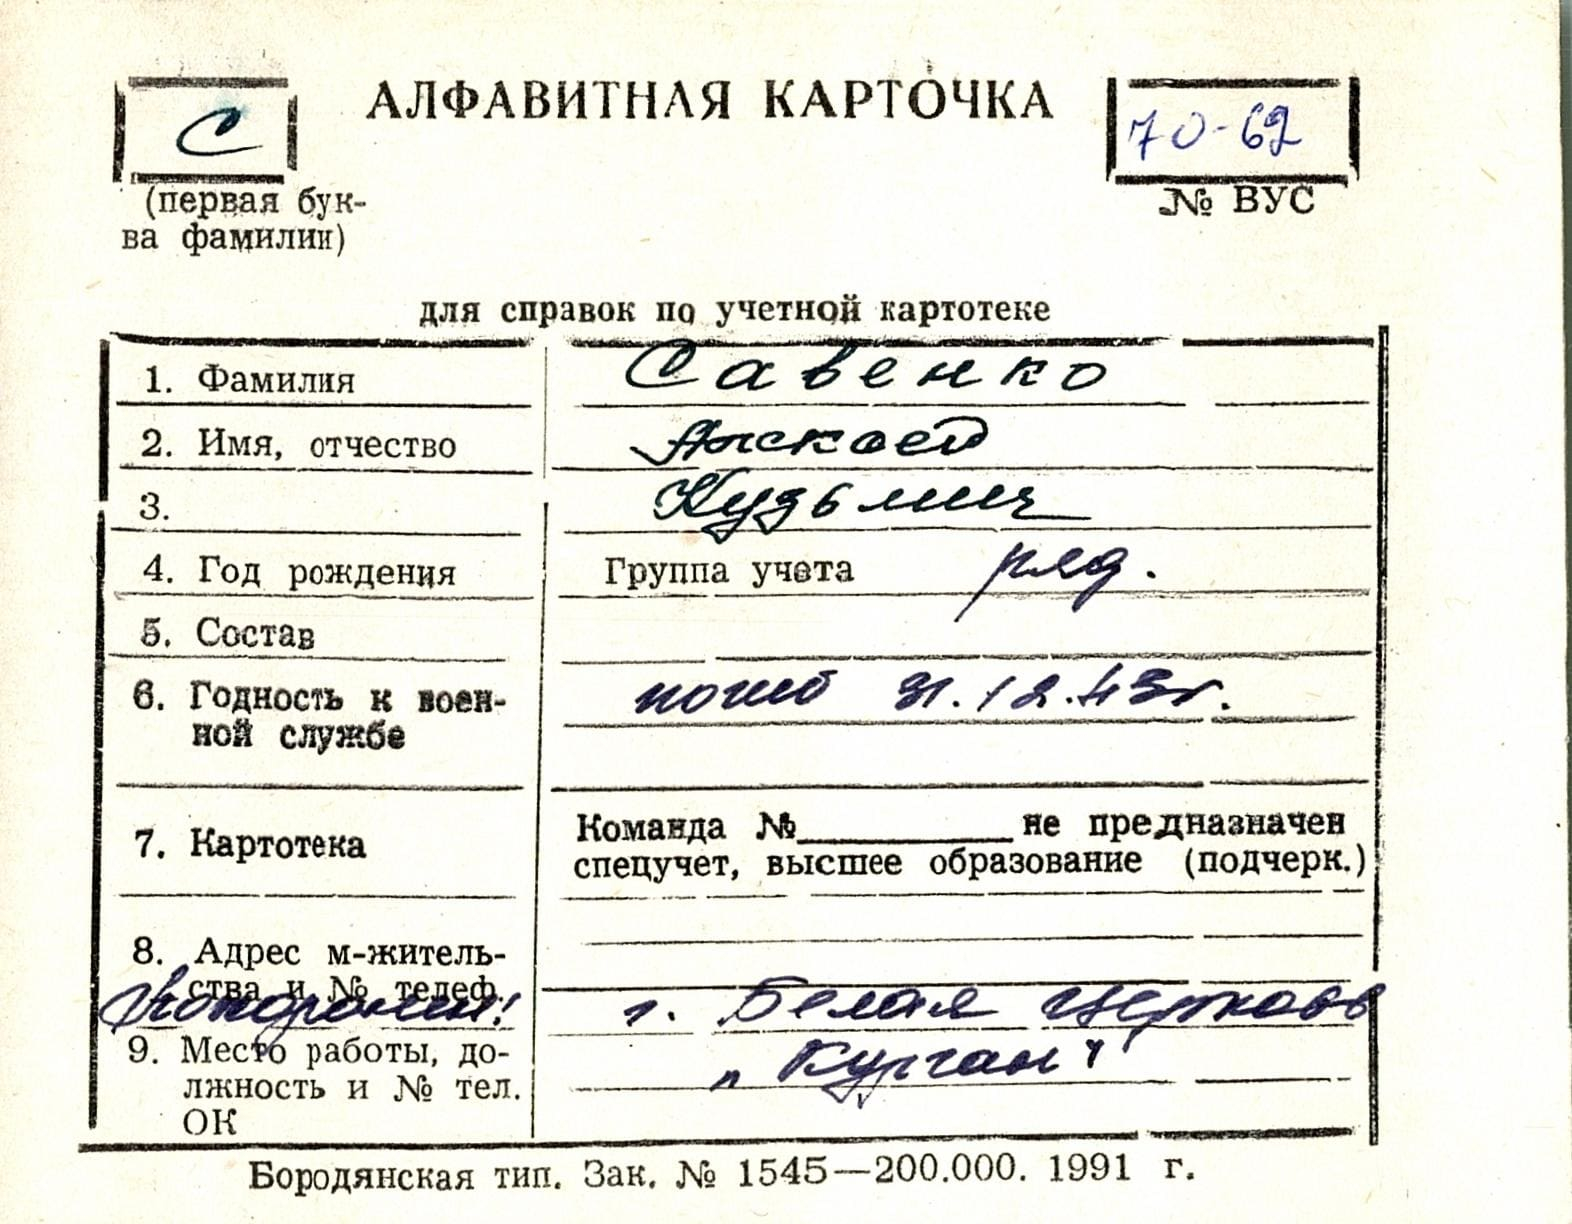 С
АЛФАВИТНАЯ КАРТОЧКА
70-62
(первая бук-
ва фамилии)
№ ВУС
для справок по учетной картотеке
1. Фамилия Савенко
2. Имя, отчество Алексей
3. Кузьмич
4. Год рождения Группа учета ряд.
5. Состав
6. Годность к воен- погиб 31.12.43г.
ной службе
7. Картотека
Команда №__________не предназначен
спецучет, высшее образование (подчерк.)
8. Адрес м-житель-
ства и № телеф.
Похоронен: г. Белая Церковь
9. Место работы, до- „Курган"
лжность и № тел.
ОК
Бородянская тип. Зак. № 1545—200.000. 1991 г.